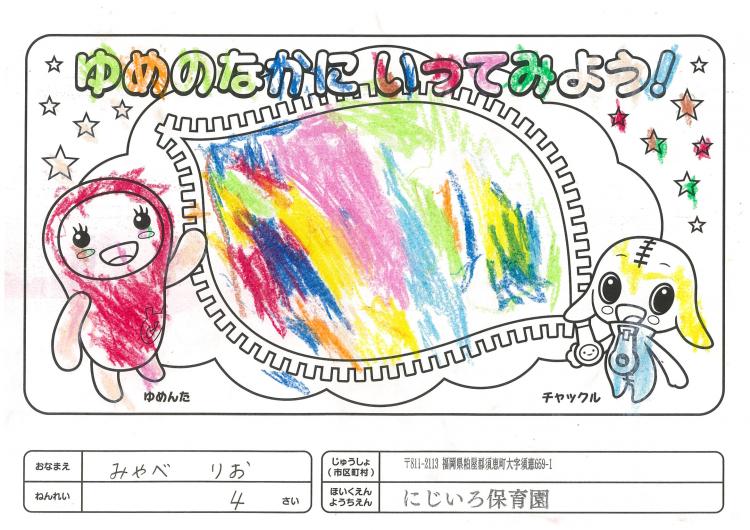 ゆめのなかに いってみよう!
ゆめんた
チャックル
おなまえ みやべ りお
ねんれい 4 さい
じゅうしょ
(市区町村)
〒811-2113 福岡県粕屋郡須恵町大字須恵659-1
ほいくえん
ようちえん
にじいろ保育園